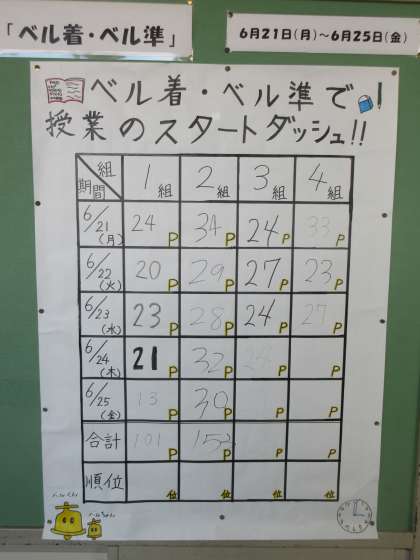 「ベル着・ベル準」
6月21日(月)～6月25日(金)
ベル着・ベル準で
授業のスタートダッシュ!!
組 期間 1組 2組 3組 4組
6/21(月) 24P 34P 24P 33P
6/22(火) 20P 29P 27P 23P
6/23(水) 23P 28P 24P 27P
6/24(木) 21P 32P P P
6/25(金) 13P 30P P P
合計 101P P P P
順位 位 位 位 位